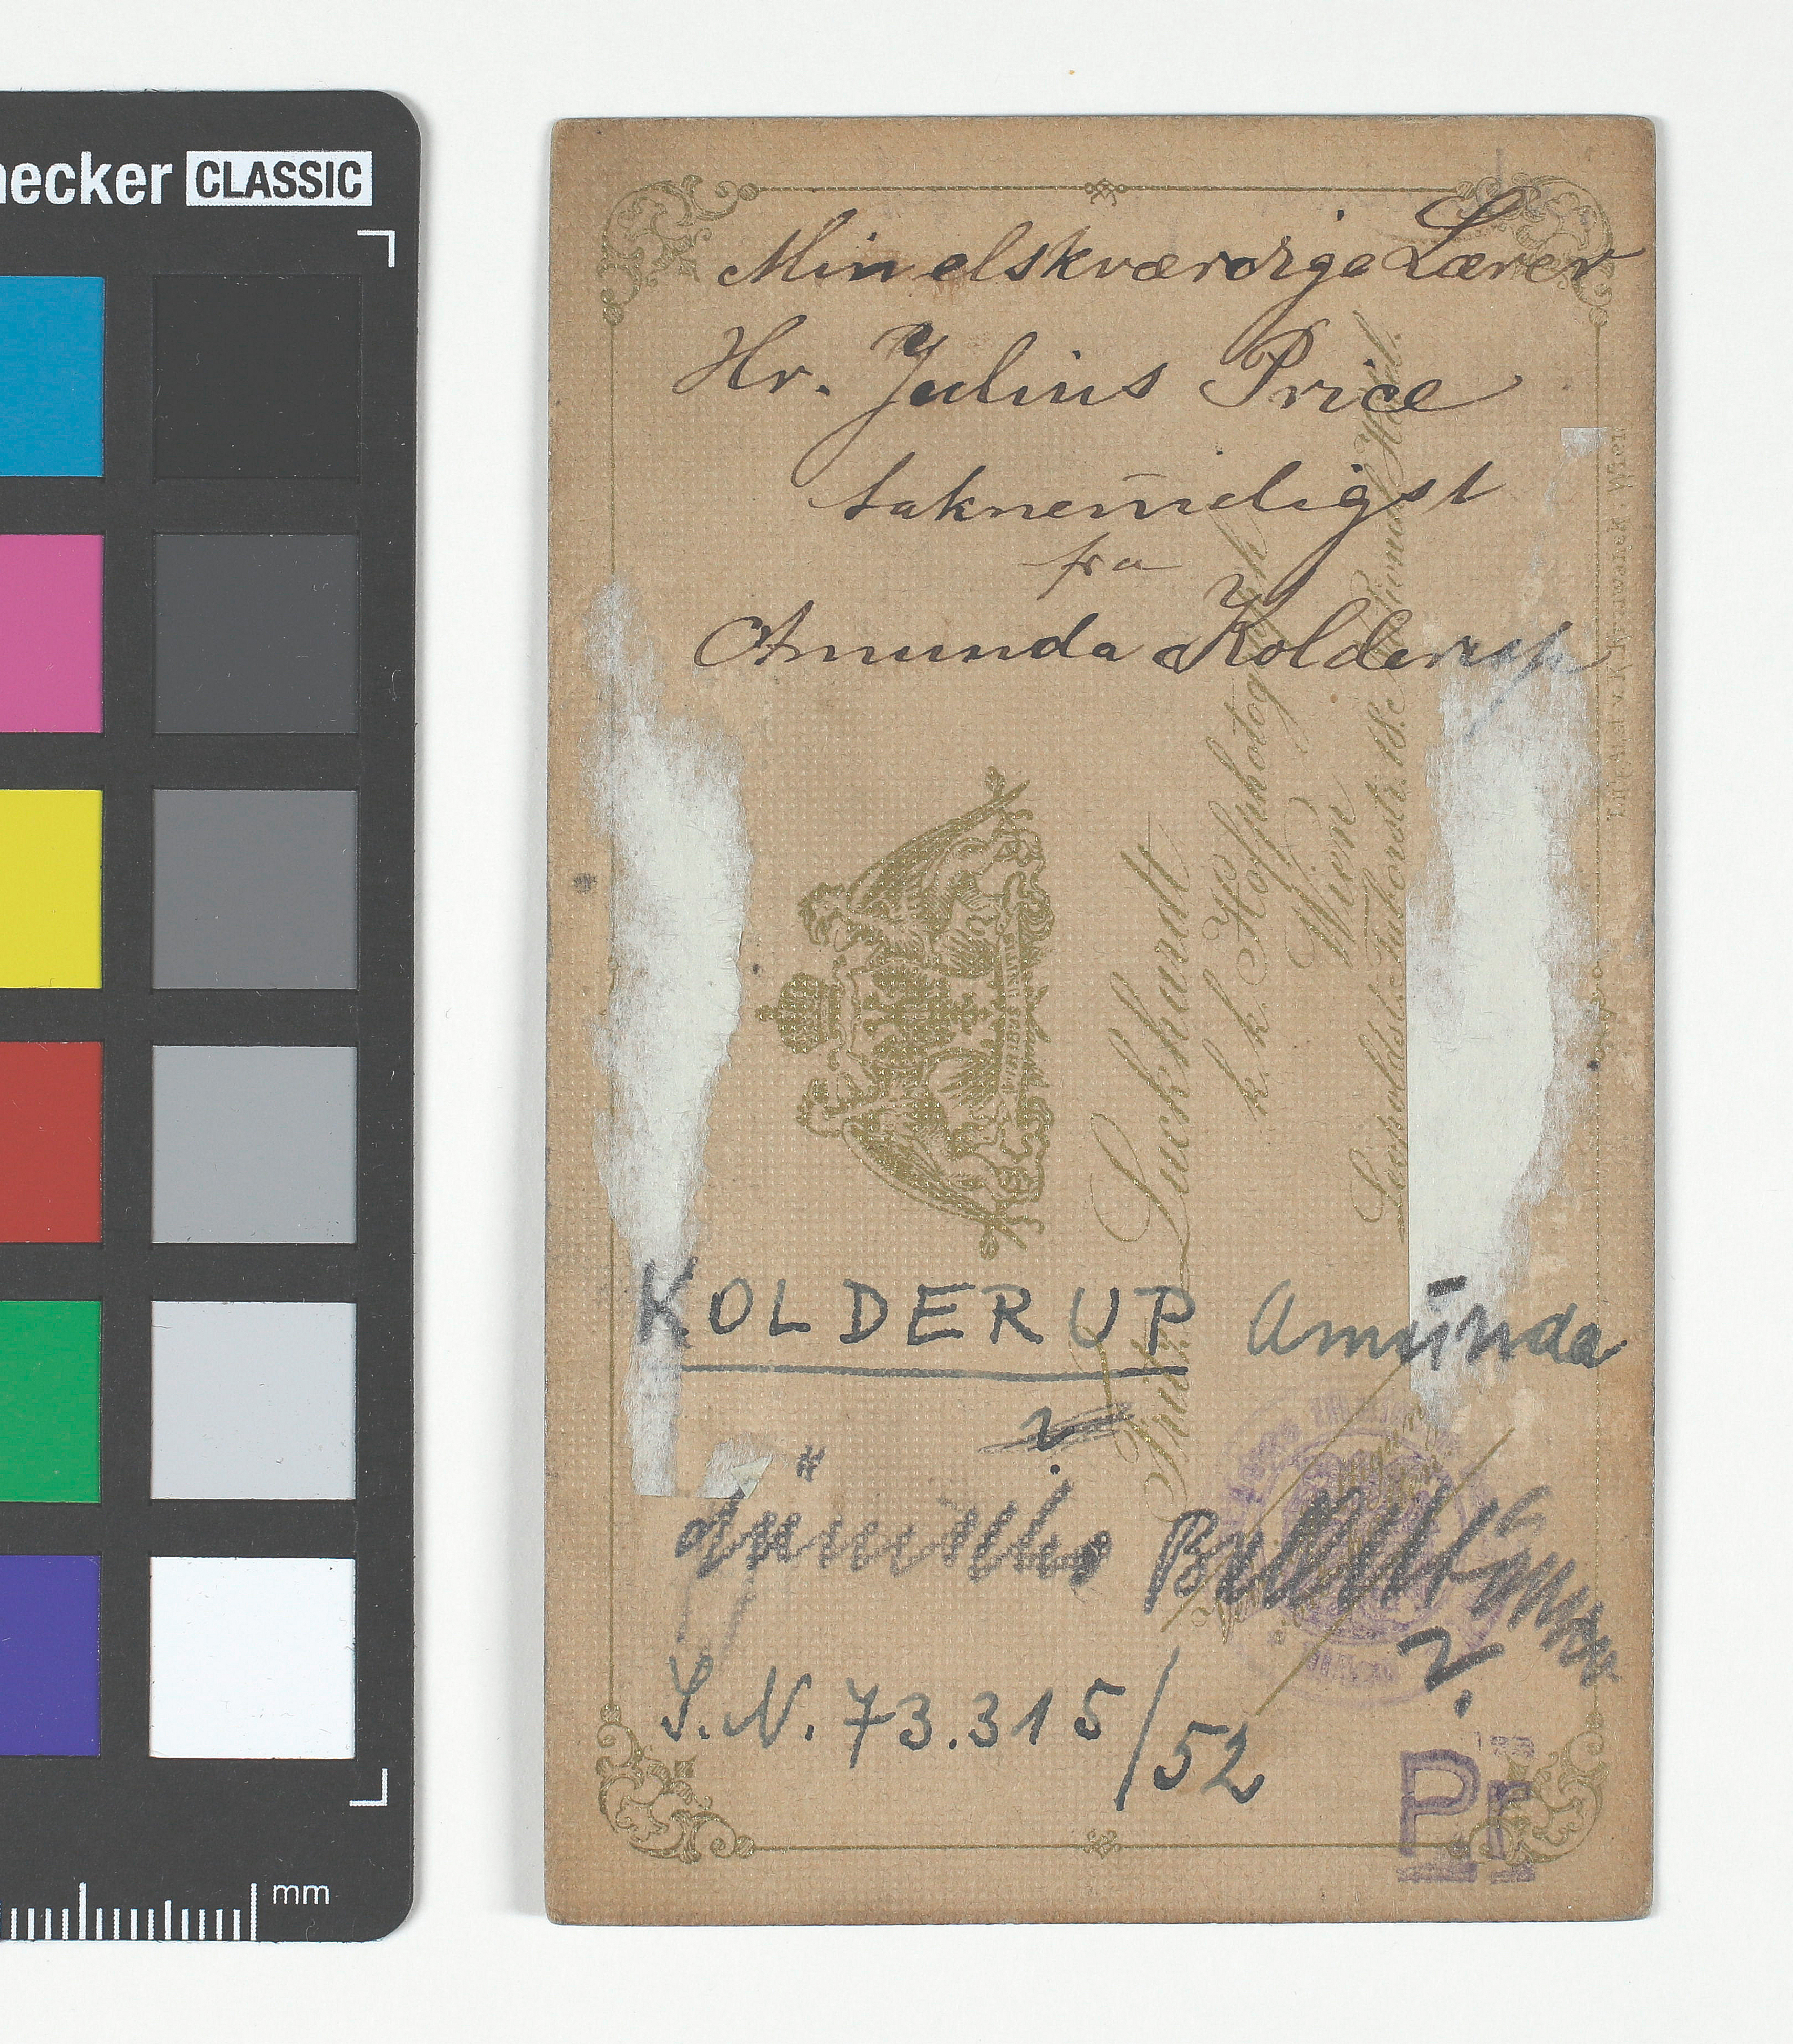 necker CLASSIC
Min elskværdige Lærer
Hr. Julius Price
taknem̄eligst
fra
Amunda Kolderup
Fritz Luckhardt
k. k. Hofphotograph
Wien
Leopoldst. Taborstr. 18. National Hôtel.
KOLDERUP Amunda
?
?
S. N. 73.315/52
Pr
mm